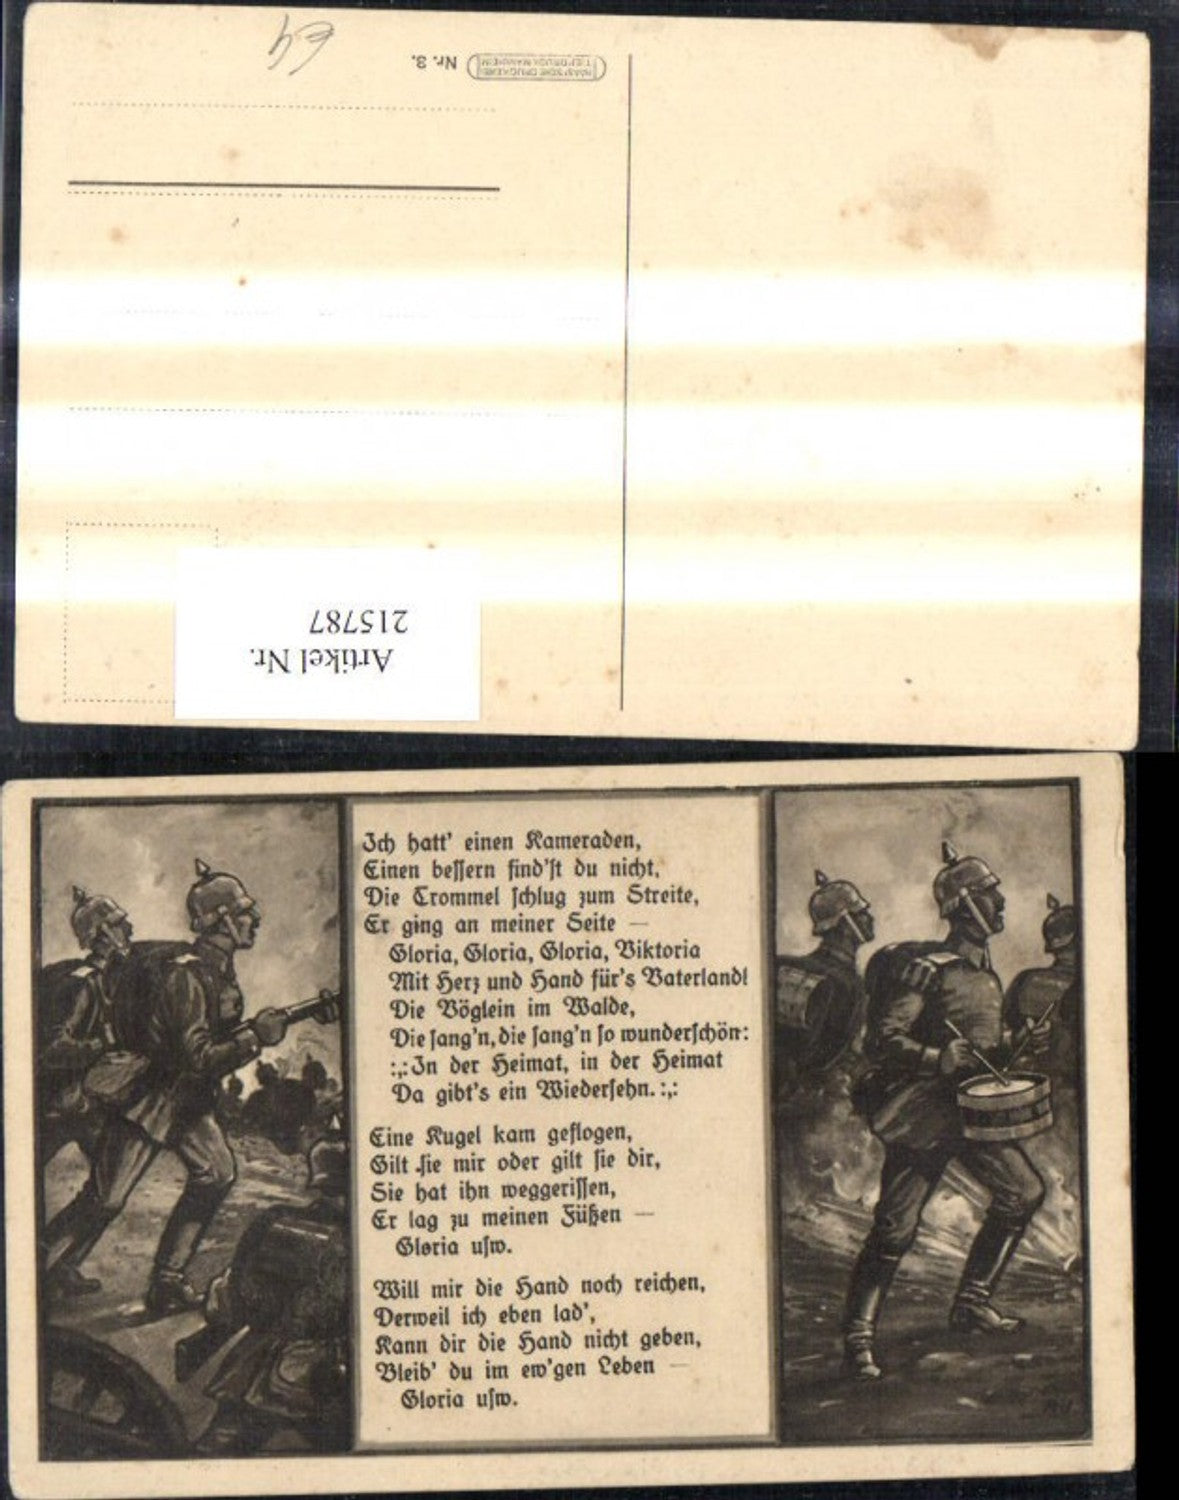 Nr. 3.
Artikel Nr.
215787
Ich hatt' einen Kameraden,
Einen bessern find'st du nicht,
Die Trommel schlug zum Streite,
Er ging an meiner Seite —
Gloria, Gloria, Gloria, Viktoria
Mit Herz und Hand für's Vaterland!
Die Vöglein im Walde,
Die sang'n, die sang'n so wunderschön:
:,: In der Heimat, in der Heimat
Da gibt's ein Wiedersehn. :,:
Eine Kugel kam geflogen,
Gilt sie mir oder gilt sie dir,
Sie hat ihn weggerissen,
Er lag zu meinen Füßen —
Gloria usw.
Will mir die Hand noch reichen,
Derweil ich eben lad',
Kann dir die Hand nicht geben,
Bleib' du im ew'gen Leben —
Gloria usw.